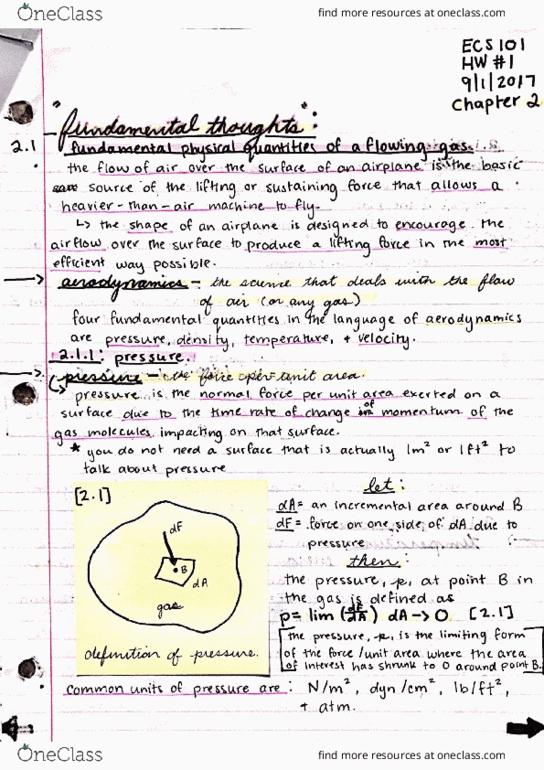 OneClass
find more resources at oneclass.com
ECS 101
HW #1
9/1/2017
Chapter 2
"fundamental thoughts":
2.1 fundamental physical quantities of a flowing gas.
the flow of air over the surface of an airplane is the basic
source of the lifting or sustaining force that allows a
heavier-than-air machine to fly.
↳ the shape of an airplane is designed to encourage the
airflow over the surface to produce a lifting force in the most
efficient way possible.
→ aerodynamics - the science that deals with the flow
of air (or any gas)
four fundamental quantities in the language of aerodynamics
are pressure, density, temperature, + velocity.
2.1.1: pressure.
→ pressure - the force per unit area.
↳ pressure is the normal force per unit area exerted on a
surface due to the time rate of change of momentum of the
gas molecules impacting on that surface.
* you do not need a surface that is actually 1m² or 1ft² to
talk about pressure
[2.1]
dF
B
dA
gas
definition of pressure.
let:
dA = an incremental area around B
dF = force on one side of dA due to
pressure
then:
the pressure, p, at point B in
the gas is defined as
p = lim (dF/dA) dA → 0 [2.1]
the pressure, p, is the limiting form
of the force/unit area where the area
of interest has shrunk to 0 around point B.
common units of pressure are: N/m², dyn/cm², lb/ft²,
+ atm.
OneClass
find more resources at oneclass.com